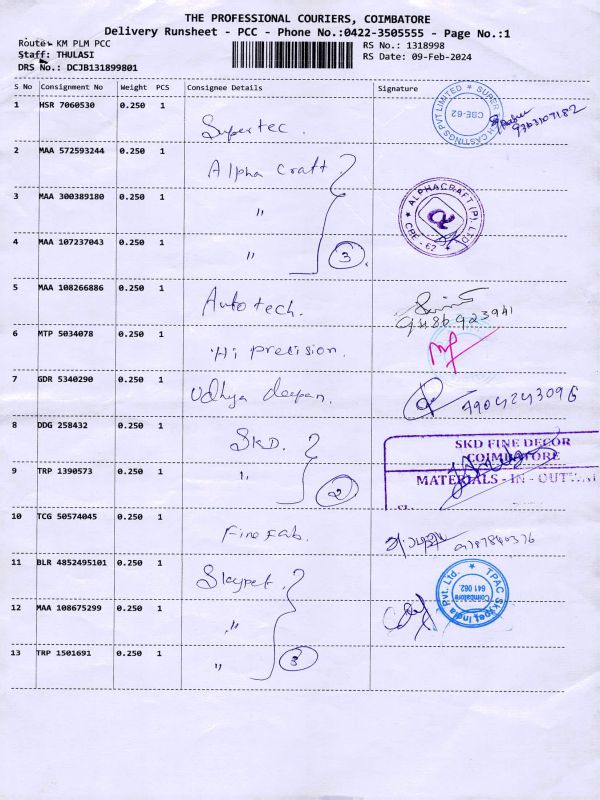 THE PROFESSIONAL COURIERS, COIMBATORE
Delivery Runsheet - PCC - Phone No.:0422-3505555 - Page No.:1
Route:- KM PLM PCC RS No.: 1318998
Staff: THULASI RS Date: 09-Feb-2024
DRS No.: DCJB131899801
S No Consignment No Weight PCS Consignee Details Signature
1 HSR 7060530 0.250 1 Supertec. CBE-62 9363107182
2 MAA 572593244 0.250 1 Alpha Craft
3 MAA 300389180 0.250 1 " ALPHACRAFT (P) LTD CBE-62
4 MAA 107237043 0.250 1 " 3
5 MAA 108266886 0.250 1 Autotech. 9486923941
6 MTP 5034078 0.250 1 Hi precision.
7 GDR 5340290 0.250 1 Udhya deepan. 4904243096
8 DDG 258432 0.250 1 SKD. SKD FINE DECOR
COIMBATORE
9 TRP 1390573 0.250 1 " 2 MATERIALS - IN - OUTWA
10 TCG 50574045 0.250 1 Fine fab. 9787840376
11 BLR 4852495101 0.250 1 Skypet. TPAC Skypet India Pvt. Ltd. 641 062 Coimbatore
12 MAA 108675299 0.250 1 "
13 TRP 1501691 0.250 1 " 3